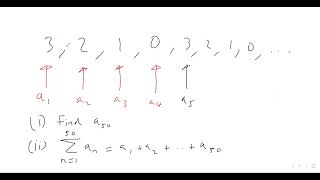 3, 2, 1, 0, 3, 2, 1, 0, ...
a₁ a₂ a₃ a₄ a₅
(i) Find a₅₀
(ii) 50∑n=1 aₙ = a₁ + a₂ + ... + a₅₀